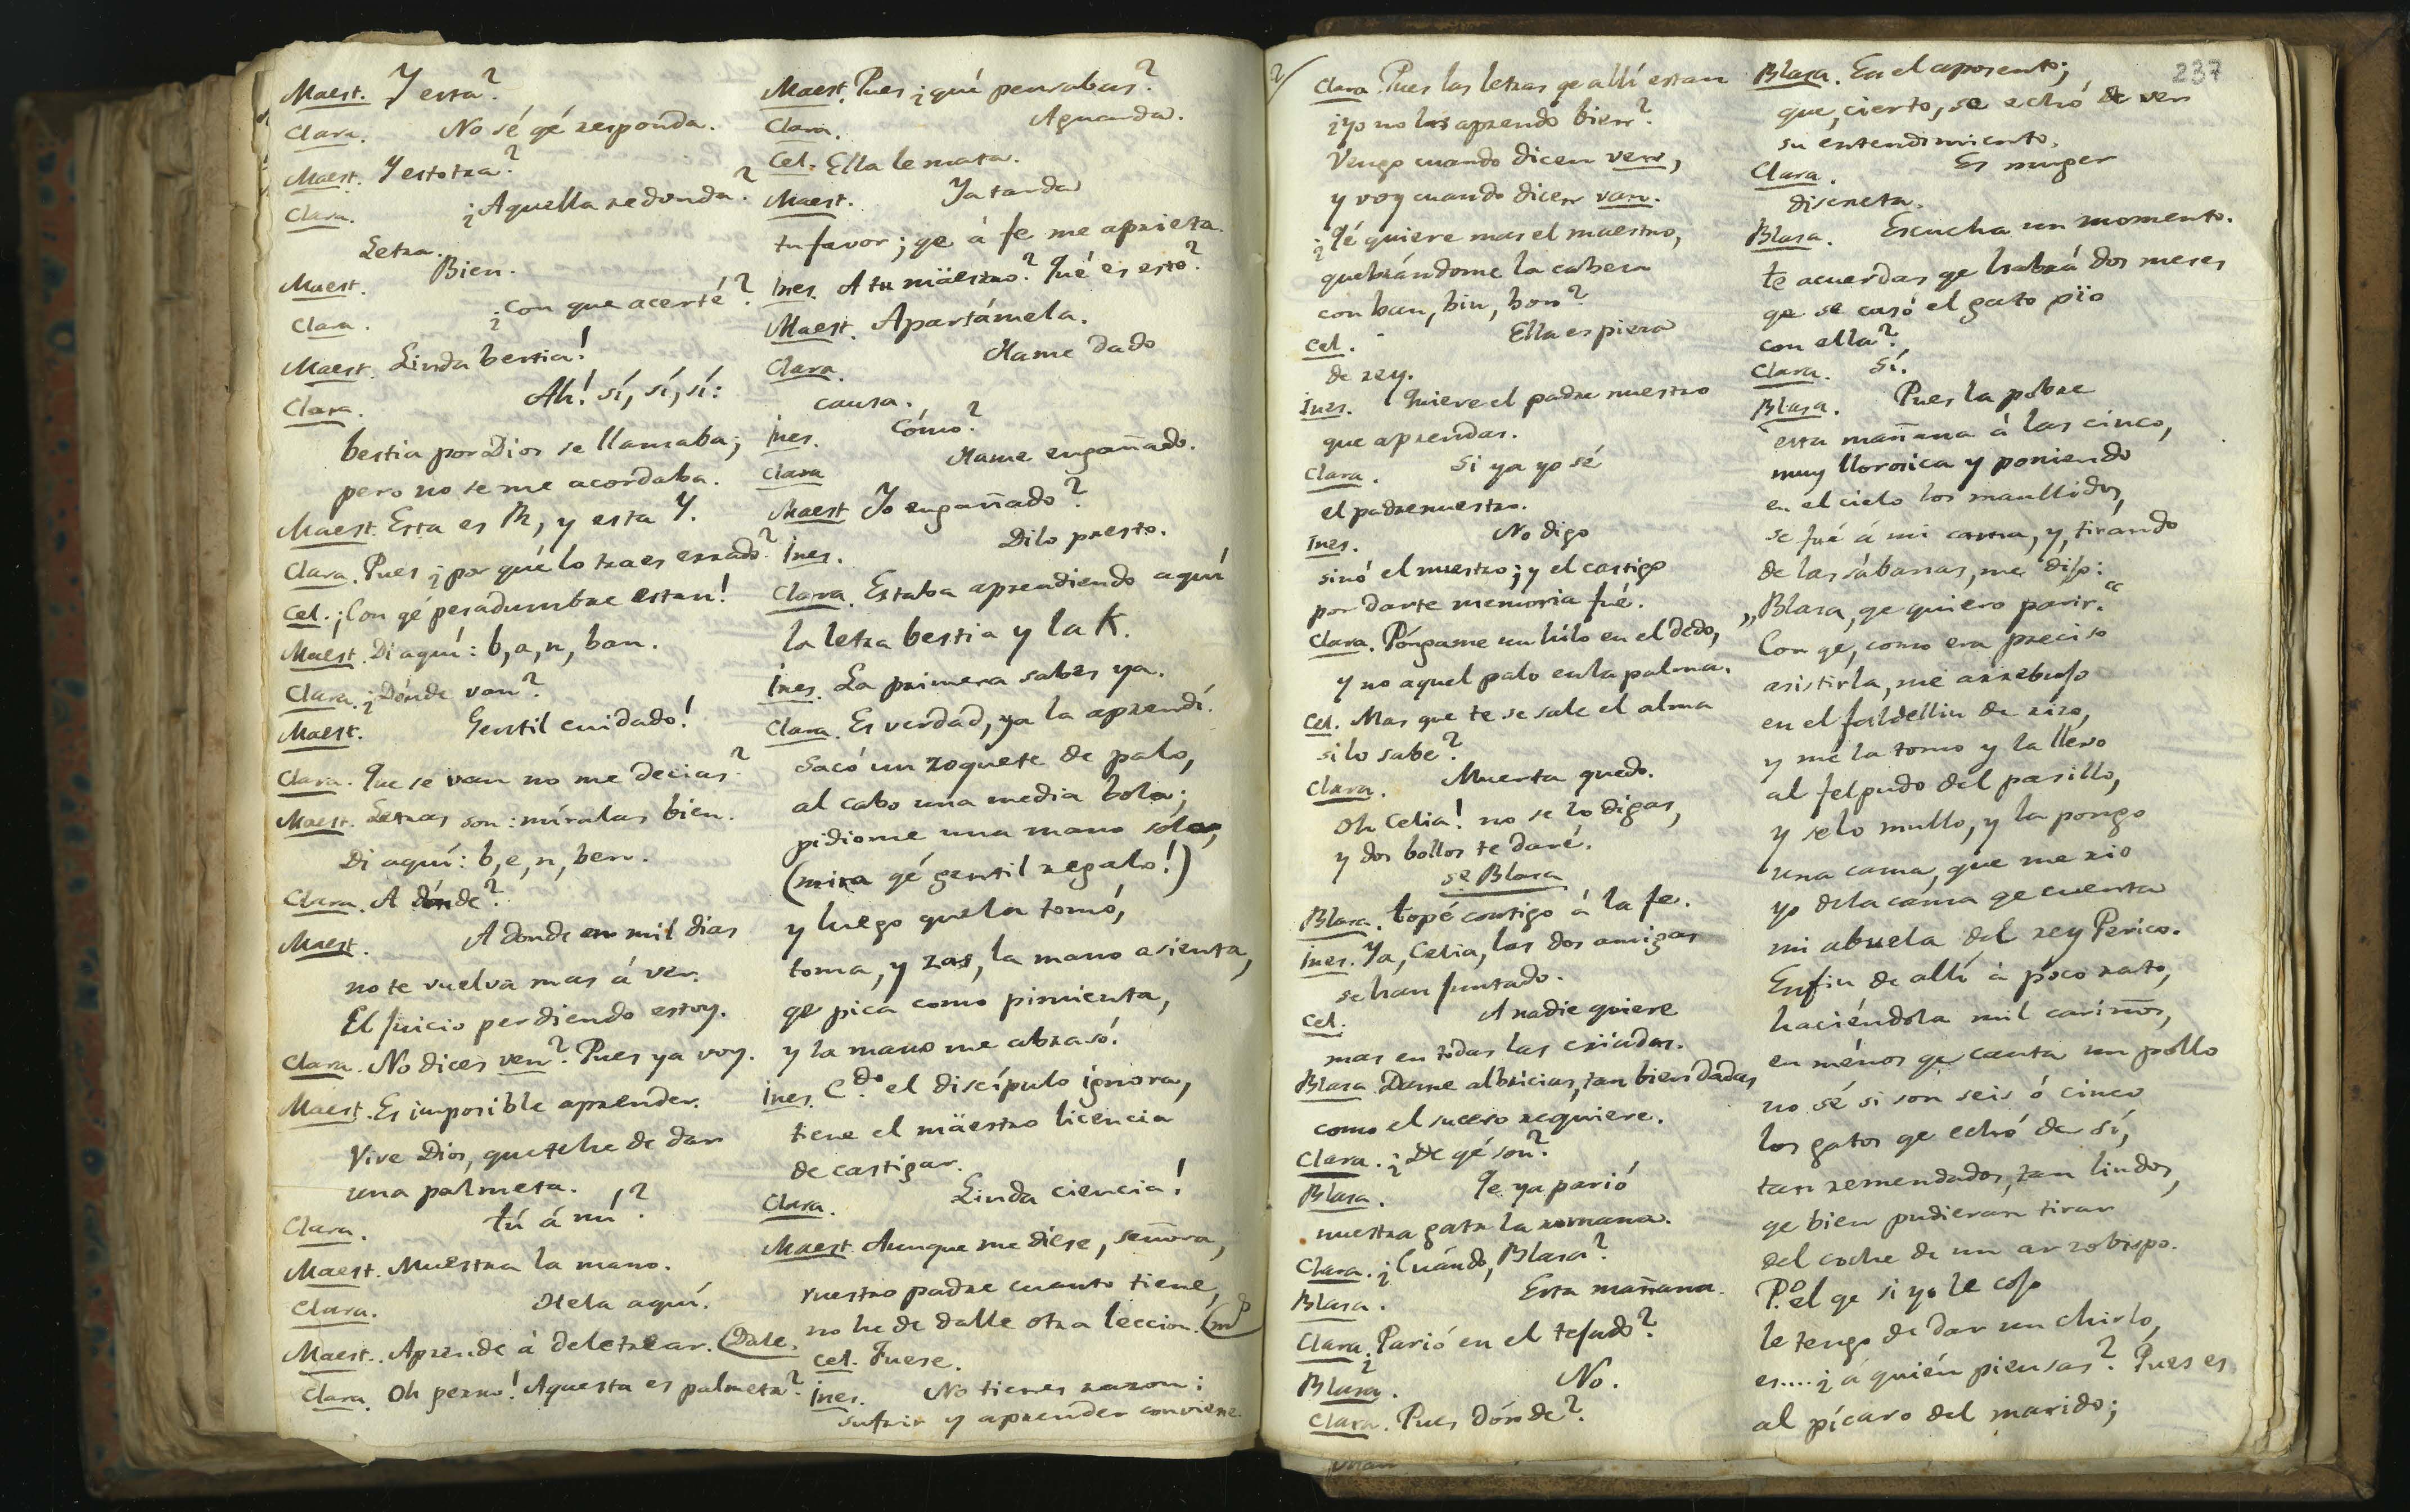 Maest. Y esta?
Clara. No sé qé responda.
Maest. Y estotra?
Clara. ¿Aquella redonda?
Letra.
Maest. Bien.
Clara. ¿Con que acerté?
Maest. Linda bestia!
Clara. Ah! sí, sí, sí:
bestia por Dios se llamaba;
pero no se me acordaba.
Maest. Esta es R, y esta Y.
Clara. Pues ¿por qué lo traes errado?
Cel. ¡Con qé pesadumbre estan!
Maest. Di aquí: b, a, n, ban.
Clara. ¿Dónde van?
Maest. Gentil cuidado!
Clara. Que se van no me decias?
Maest. Letras son: míralas bien.
Di aquí: b, e, n, ben.
Clara. A dónde?
Maest. A donde en mil dias
no te vuelva mas á ver.
El juicio perdiendo estoy.
Clara. No dices ven? Pues ya voy.
Maest. Es imposible aprender.
Vive Dios, que te he de dar
una palmeta.
Clara. tú á mí?
Maest. Muestra la mano.
Clara. Hela aquí.
Maest. Aprende á deletrear. (Dale.
Clara. Oh perro! Aquesta es palmeta?
Maest. Pues ¿qué pensabas?
Clara. Aguarda.
Cel. Ella le mata.
Maest. Ya tarda
tu favor; qe á fe me aprieta.
Ines. A tu mäestro? Qué es esto?
Maest. Apartámela.
Clara. Hame dado
causa.
Ines. Cómo?
Clara Hame engañado.
Maest Yo engañado?
Ines. Dilo presto.
Clara. Estaba aprendiendo aquí
la letra bestia y la K.
Ines. La primera sabes ya.
Clara. Es verdad, ya la aprendí.
Sacó un zoquete de palo,
al cabo una media bola;
pidiome una mano sóla,
(mira qé gentil regalo!)
y luego que la tomó,
toma, y zas, la mano asienta,
qe pica como pimienta,
y la mano me abrasó.
Ines. C.do el discípulo ignora,
tiene el mäestro licencia
de castigar.
Clara. Linda ciencia!
Maest. Aunque me diese, señora,
vuestro padre cuanto tiene,
no he de dalle otra leccion.
Cel. Fuese.
Ines. No tienes razon:
sufrir y aprender conviene.
237
Clara. Pues las letras qe allí estan
¿yo no las aprendo bien?
Vengo cuando dicen ven,
y voy cuando dicen van.
¿Qé quiere mas el maestro,
quebrándome la cabeza
con ban, bin, bon?
Cel. Ella es pieza
de rey.
Ines. Quiere el padre nuestro
que aprendas.
Clara. Si ya yo sé
el padrenuestro.
Ines. No digo
sinó el nuestro; y el castigo
por darte memoria fué.
Clara. Póngame un hilo en el dedo,
y no aquel palo en la palma.
Cel. Mas que te se sale el alma
si lo sabe?
Clara. Muerta quedo.
Oh Celia! no se lo digas,
y dos bollos te daré.
se Blasa
Blasa. topé contigo á la fe.
Ines. Ya, Celia, las dos amigas
se han juntado.
Cel. A nadie quiere
mas en todas las criadas.
Blasa Dame albricias, tan bien dadas
como el suceso requiere.
Clara. ¿De qé son?
Blasa. Qe ya parió
nuestra gata la romana.
Clara. ¿Cuándo, Blasa?
Blasa. Esta mañana.
Clara. ¿Parió en el tejado?
Blasa. No.
Clara. Pues dónde?
Blasa. En el aposento;
que, cierto, se echó de ver
su entendimiento.
Clara. Es muger
discreta.
Blasa. Escucha un momento.
te acuerdas qe habrá dos meses
qe se casó el gato pïo
con ella?
Clara. Sí.
Blasa. Pues la pobre
esta mañana á las cinco,
muy llorosica y poniendo
en el cielo los maullidos,
se fué á mi cama, y, tirando
de las sábanas, me dijo:
„Blasa, qe quiero parir.“
Con qe, como era preciso
asistirla, me arrebujo
en el faldellin de rizo,
y me la tomo y la llevo
al felpudo del pasillo,
y se lo mullo, y la pongo
una cama, que me rio
yo de la cama qe cuenta
mi abuela del rey Perico.
En fin de allí á poco rato,
haciéndola mil cariños,
en ménos qe canta un pollo
no sé si son seis ó cinco
los gatos qe echó de sí,
tan remendados, tan lindos,
qe bien pudieran tirar
del coche de un arzobispo.
P.o el qe si yo le cojo
le tengo de dar un chirlo,
es.... ¿á quién piensas? Pues es
al pícaro del marido;